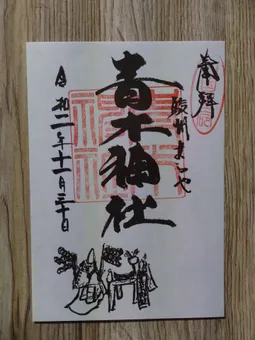 奉拝
駿州
青木神社
令和二年十一月三十日